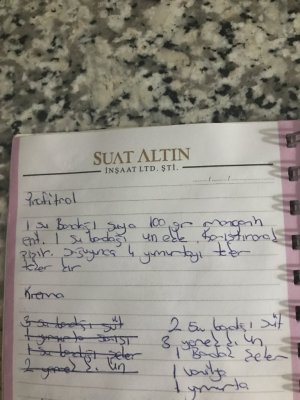 SUAT ALTIN
İNŞAAT LTD. ŞTİ.
Profitrol
1 su Bardağı suya 100 gr margarin
erit. 1 su bardağı un ekle. karıştırarak
pişir. Soğuyunca 4 yumurtayı teker
teker kır
Krema
3 su bardağı süt
1 yumurta sarısı
1 su bardağı şeker
2 yemek k. un
2 su bardağı süt
3 yemek k. un
1 Bardak şeker
1 vanilya
1 yumurta